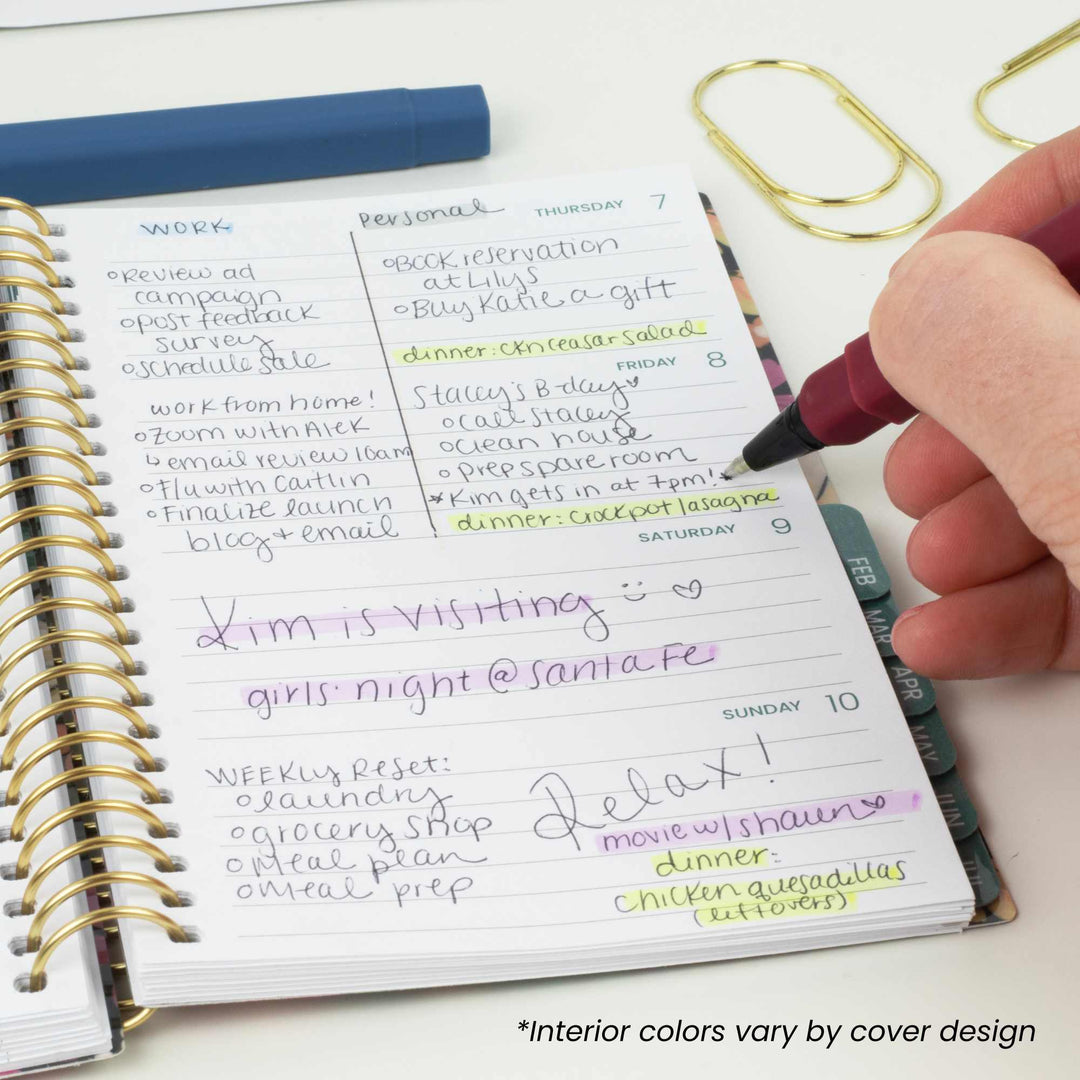 WORK
Personal
THURSDAY 7
Review ad
campaign
post feedback
survey
schedule sale
BOOK reservation
at Lilys
Buy Katie a gift
dinner: ckn ceasar salad
FRIDAY 8
work from home!
Zoom with Alek
↳ email review 10am
F/u with Caitlin
Finalize launch
blog + email
Stacey's B-day
call Stacey
clean house
prep spare room
*Kim gets in at 7pm!*
dinner: crockpot lasagna
SATURDAY 9
Kim is visiting
girls' night @ Santa Fe
SUNDAY 10
WEEKLY Reset:
laundry
grocery shop
Meal plan
Meal prep
Relax!
movie w/ shawn
dinner:
chicken quesadillas
(leftovers)
FEB
MAR
APR
MAY
JUN
JUL
*Interior colors vary by cover design